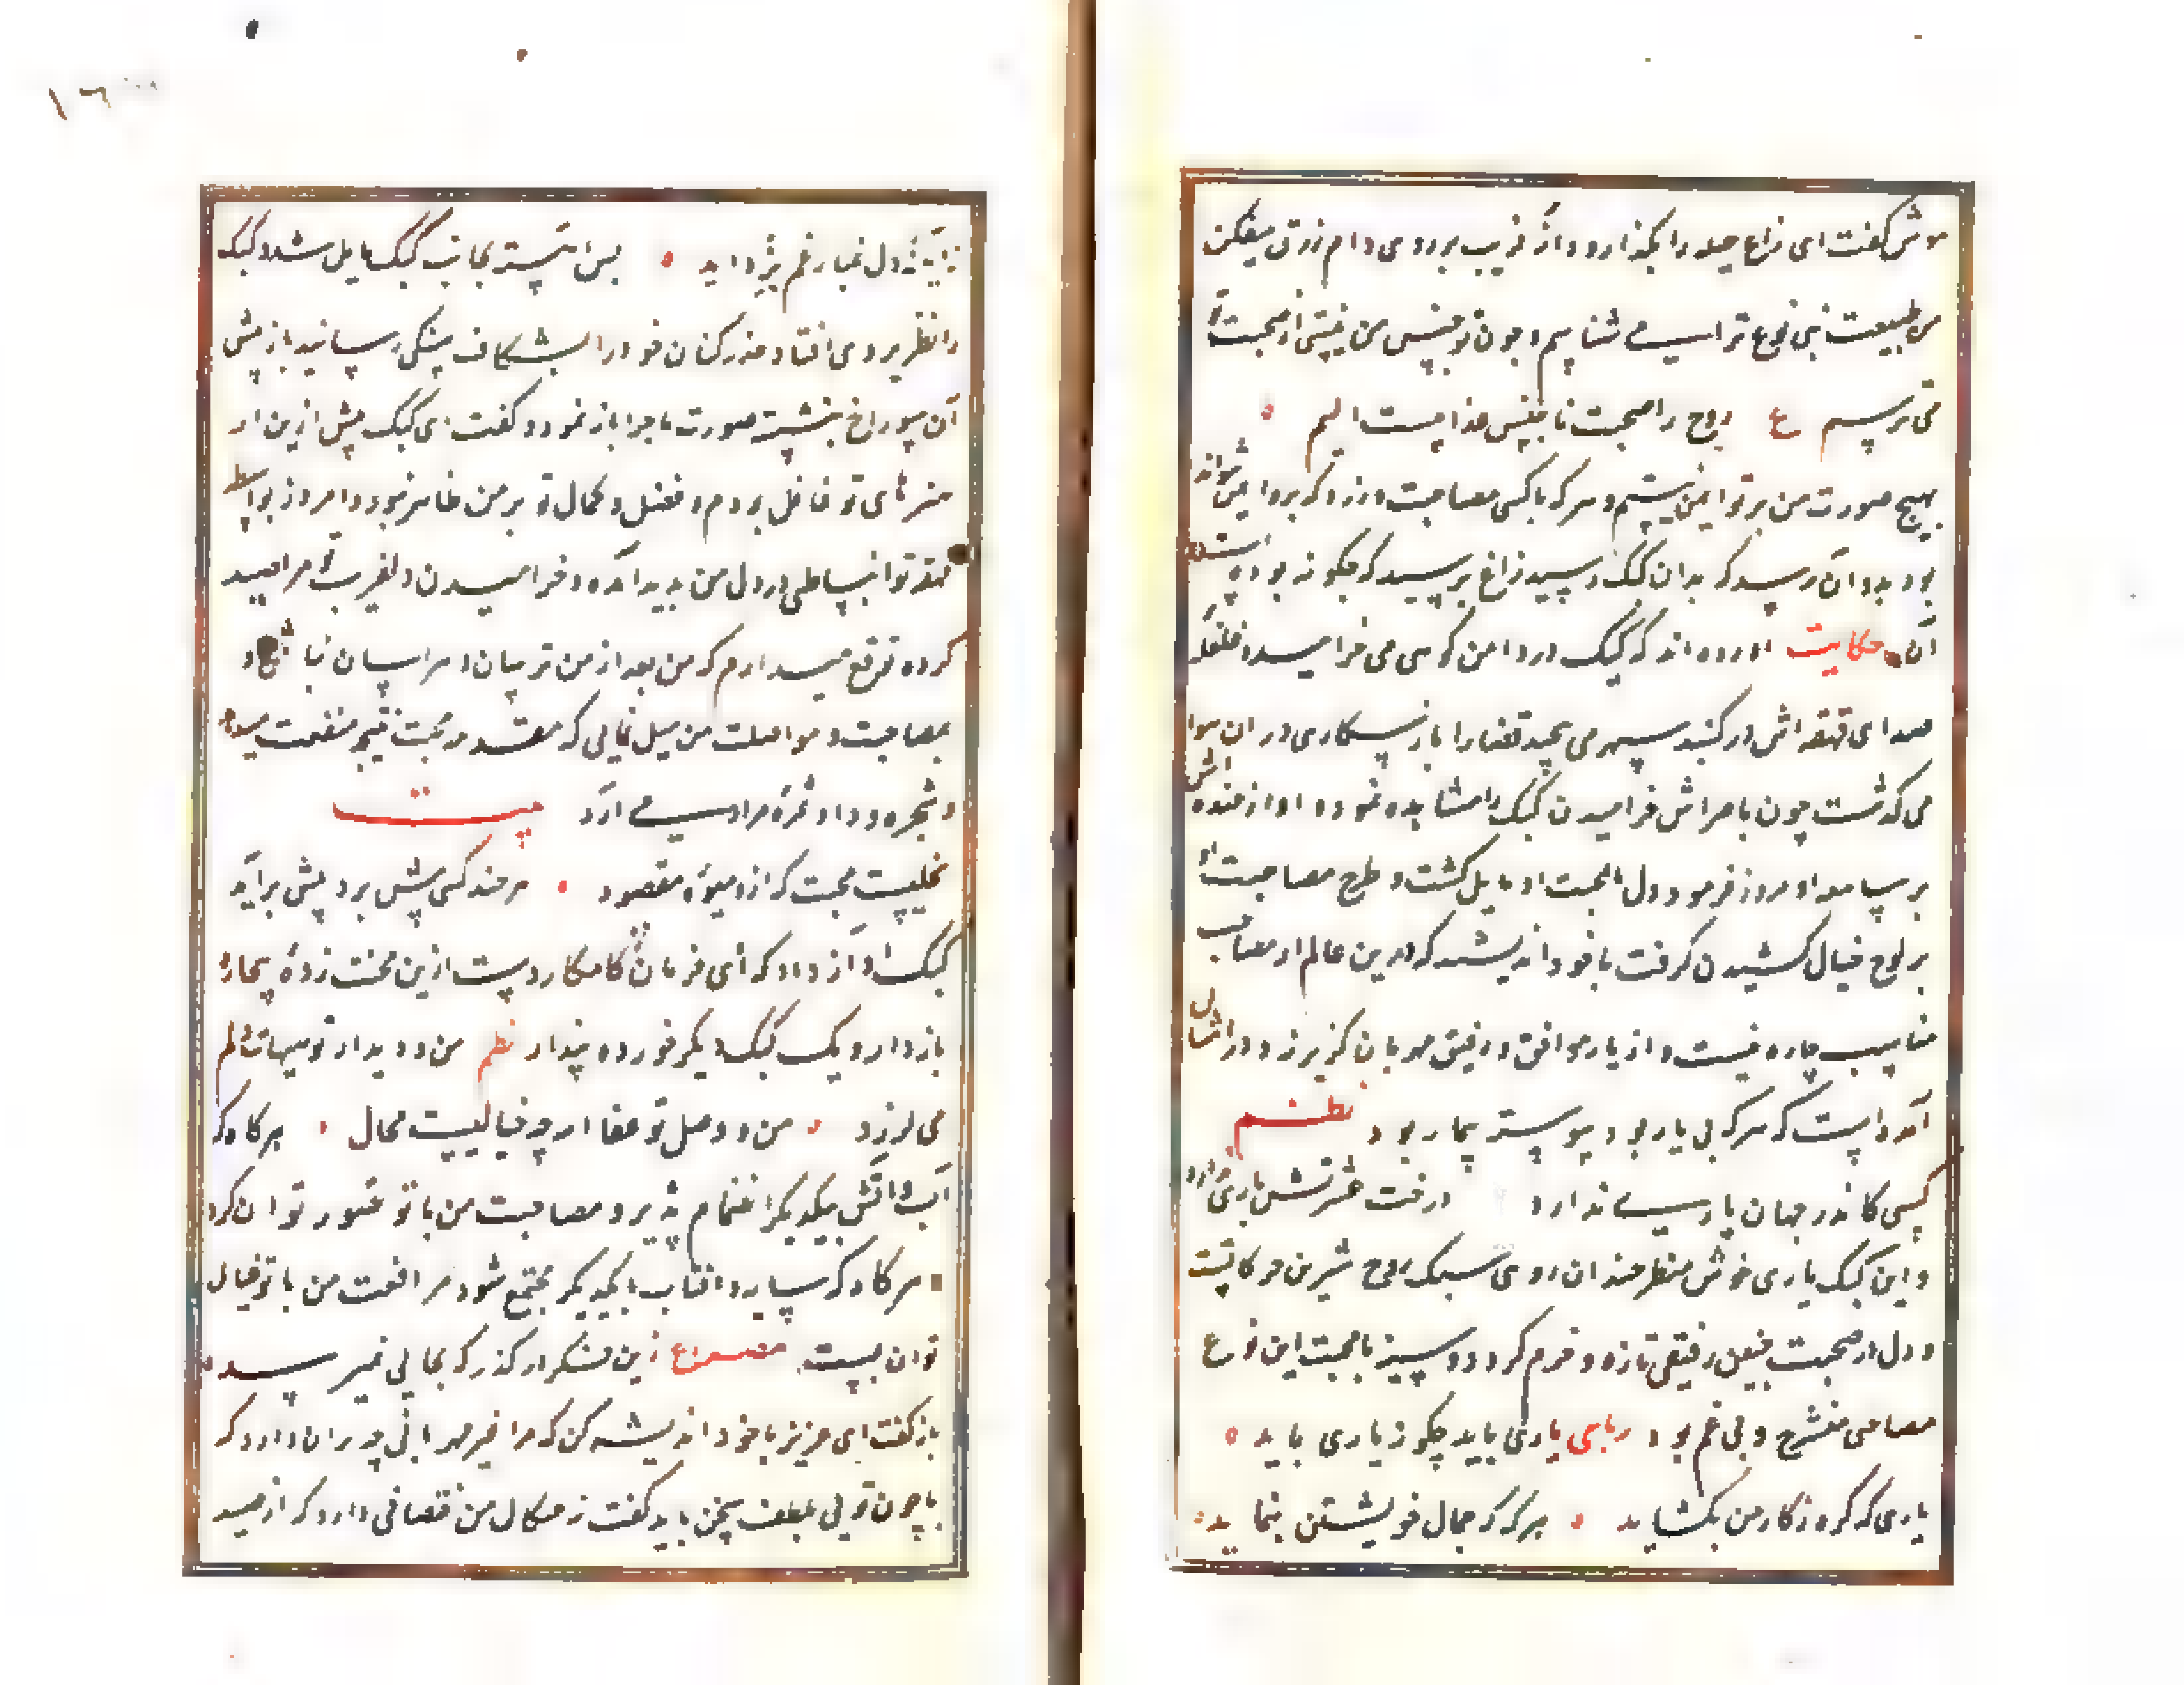 موش گفت ای زاغ حیله را بگذار و دانه فریب بر روی دام زرق میفکن
من طبیعت بنی نوع ترا می شناسم و چون تو جنس من نیستی از صحبت تو
می ترسم ع روح را صحبت ناجنس عذابیست الیم
بهیچ صورت من بر تو ایمن نیستم و هرکه با کسی مصاحبت ورزد که بر وایمن نتواند
بود بدو آن رسد که بدان کبک رسید زاغ پرسید که چگونه بوده است
آن حکایت آورده اند که کبک در دامن کوهی می خرامید و غلغله
صدای قهقهه اش در گنبد سپهر می پیچید قضا را باز شکاری در آن هوا
می گذشت چون بازرا مش خرامیدن کبک را مشاهده نمود و آواز خنده اش
بر سامعه او مرور فرمود دل بمحبت او مایل گشت و طرح مصاحبت او
بر لوح خیال کشیدن گرفت با خود اندیشید که درین عالم از مصاحب
مناسب چاره نیست و از یار موافق و رفیق مهربان گزیر نه و در امثال
آمده است که هرکه بی یار بود پیوسته بیمار بود نظم
کسی کاندر جهان یاری ندارد درخت عشرتش باری ندارد
و این کبک یاری خوش منظر خندان روی سبک روح شیرین حرکاتست
و دل در صحبت چنین رفیقی تازه و خرم گردد و سینه با محبت این نوع
مصاحبی منشرح و بی غم بود رباعی یاری باید چگونه یاری باید
یاری که گره ز کار من بگشاید هر گه که جمال خویشتن بنماید
ز آیینه دل غبار غم بزداید پس آهسته بجانب کبک مایل شد و کبک
را نظر بر وی افتاد حذرکنان خود را بشکاف سنگی رسانید باز پیش
آن سوراخ بنشست صورت ماجرا باز نمود و گفت ای کبک پیش ازین از
هنرهای تو غافل بودم و فضل و کمال تو بر من ظاهر نبود و امروز بواسطه
قهقهه تو انبساطی در دل من پدید آمده و خرامیدن دلفریب تو مرا صید
کرده توقع میدارم که من بعد از من ترسان و هراسان نباشی و
بمصاحبت و مواصلت من میل نمایی که مقدمه محبت نتیجه منفعت میدهد
و شجره وداد ثمره مراد می آرد بیت
نخلیست محبت که ازو میوه مقصود هرچند کسی بیش برد بیش برآید
کبک آواز داد که ای فرمان کامکار دست ازین محنت زده بیچاره
باز دار و یک کبک دیگر خورده پندار نظم من و دیدار تو هیهات دلم
می لرزد من و وصل تو عفا الله چه خیالیست محال هرگاه که
آب و آتش بیکدیگر انضمام پذیرد مصاحبت من با تو تصور توان کرد
هرگاه که سایه و آفتاب بایکدیگر مجتمع شود مرافقت من با تو خیال
توان بست مصراع زین فکر درگذر که بجایی نمیرسد
باز گفت ای عزیز با خود اندیشه کن که مرا غیر مهربانی چه بران دارد که
با چون تویی بلطف سخن باید گفت نه چنگال من نقصانی دارد که از صید